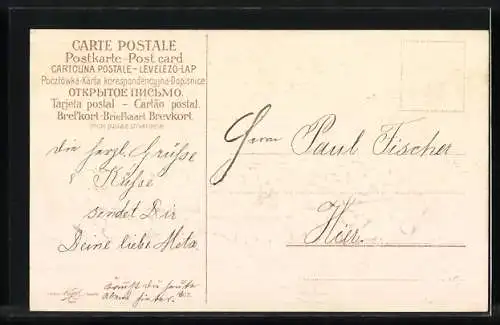 CARTE POSTALE
Postkarte-Post card
CARTOLINA POSTALE - LEVELEZŐ-LAP
Pocztówka-Karta korespondencyjna-Dopisnice
ОТКРЫТОЕ ПИСЬМО.
Tarjeta postal - Cartão postal.
Brefkort-Briefkaart Brevkort.
die herzl. Grüsse
& Küsse
sendet Dir
Deine liebe Meta
die heute
Herrn Paul Fischer
Hier.